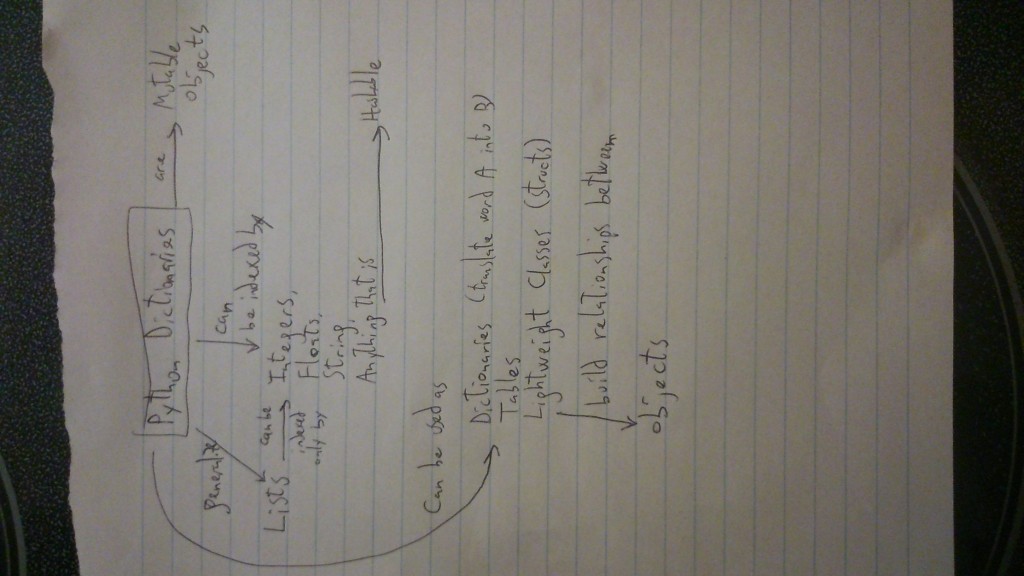 Python Dictionaries are Mutable
objects
generalize
can
be indexed by
Lists can be
indexed
only by
Integers,
Floats,
String,
Anything that is Hashable
Can be used as
Dictionaries (translate word A into B)
Tables
Lightweight Classes (structs)
build relationships between
objects